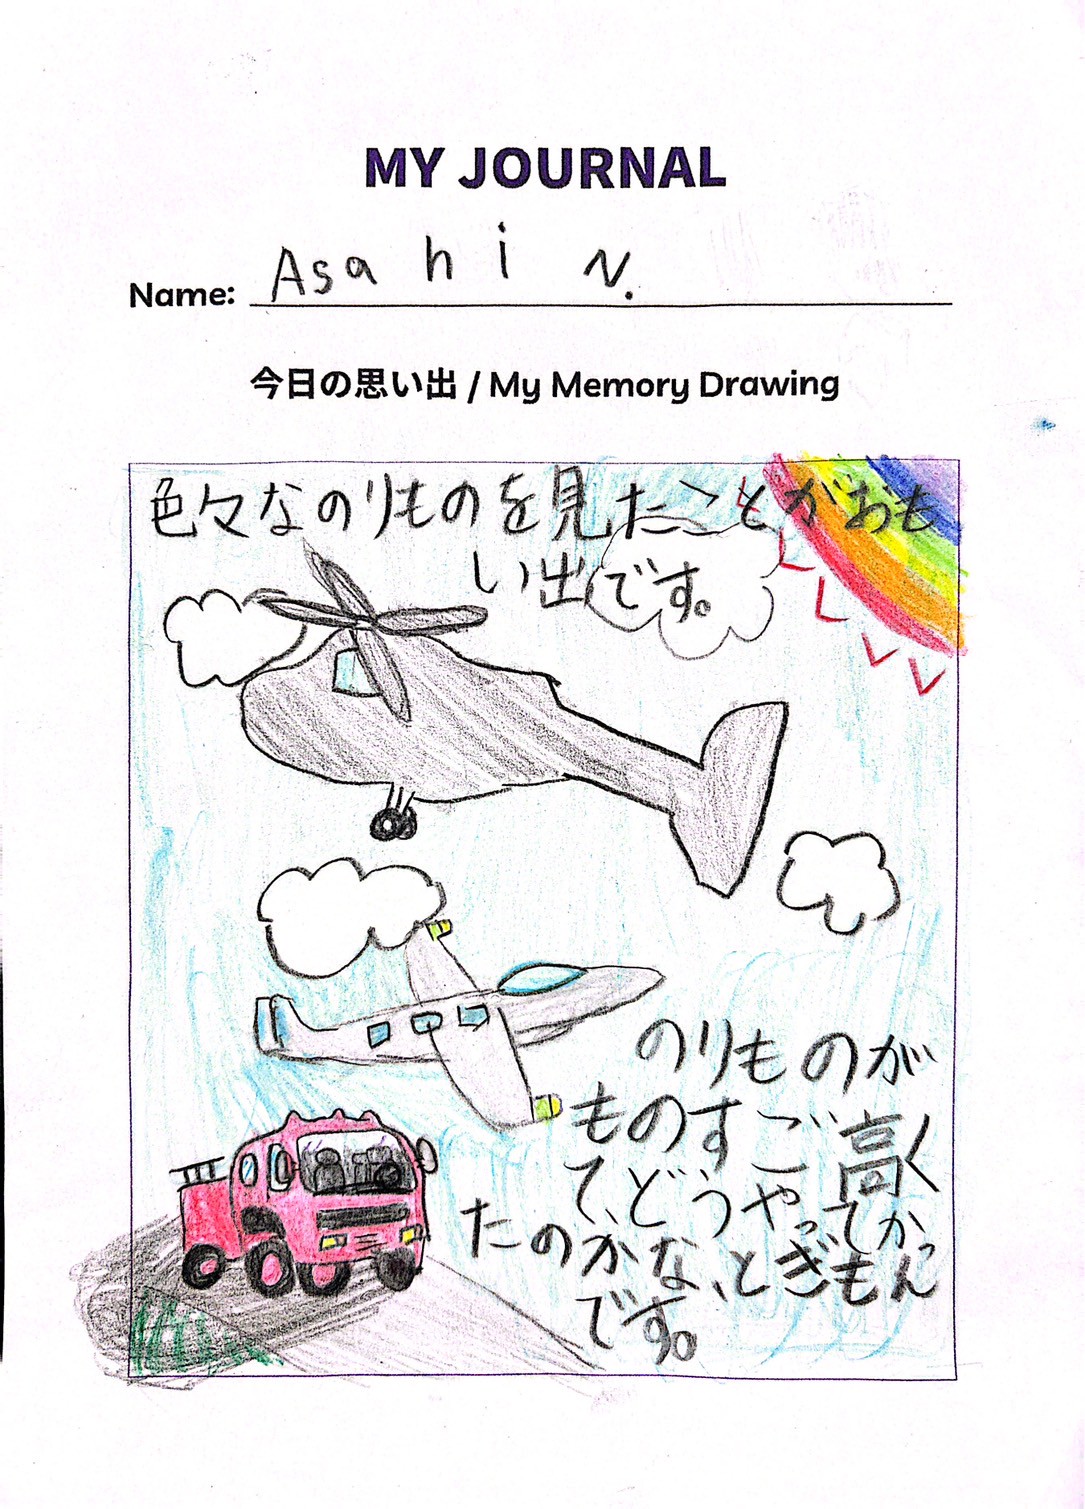 MY JOURNAL
Name: Asahi N.
今日の思い出 / My Memory Drawing
色々なのりものを見たことがおも
い出です。
のりものが
ものすごく高く
て、どうやってかっ
たのかな、とぎもん
です。